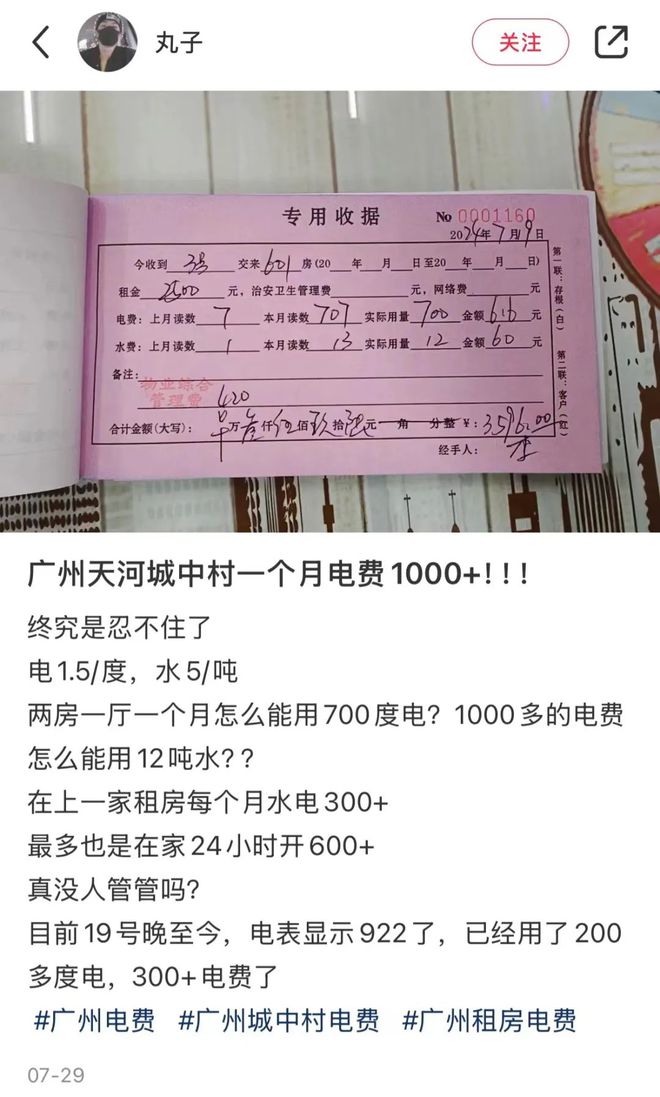 丸子
关注
专用收据
No 0001160
2024年7月19日
今收到 交来601房(20 年 月 日至20 年 月 日)
租金2500元，治安卫生管理费 元，网络费 元
电费：上月读数 7 本月读数 707 实际用量 700 金额 616 元
水费：上月读数 1 本月读数 13 实际用量 12 金额 60 元
备注：
物业综合
管理费
420
合计金额(大写)： 万叁仟伍佰玖拾 元 角 分整 ￥：3596.00
经手人：
第一联：存根(白)
第二联：客户(红)
广州天河城中村一个月电费1000+！！！
终究是忍不住了
电1.5/度，水5/吨
两房一厅一个月怎么能用700度电？1000多的电费
怎么能用12吨水？？
在上一家租房每个月水电300+
最多也是在家24小时开600+
真没人管管吗？
目前19号晚至今，电表显示922了，已经用了200
多度电，300+电费了
#广州电费 #广州城中村电费 #广州租房电费
07-29